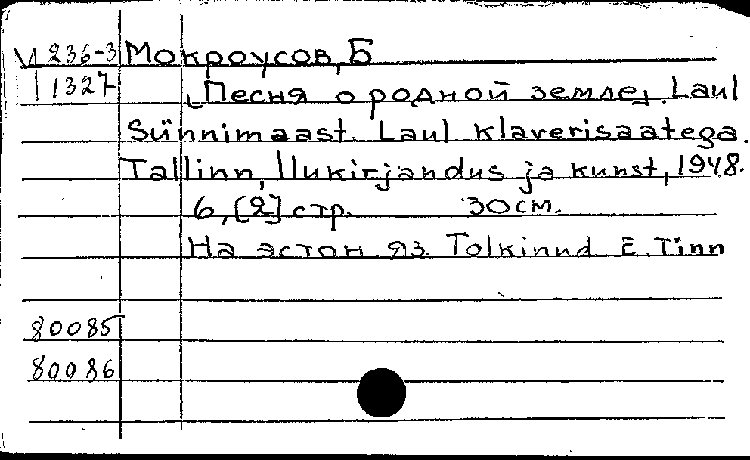 М 236-3 Мокроусов, Б
1327 [Песня о родной земле]. Laul
Sünnimaast. Laul klaverisaatega.
Tallinn, Ilukirjandus ja kunst, 1948.
6, [2] стр. 30 см.
На эстон яз. Tolkinud E. Tinn
80085
80086